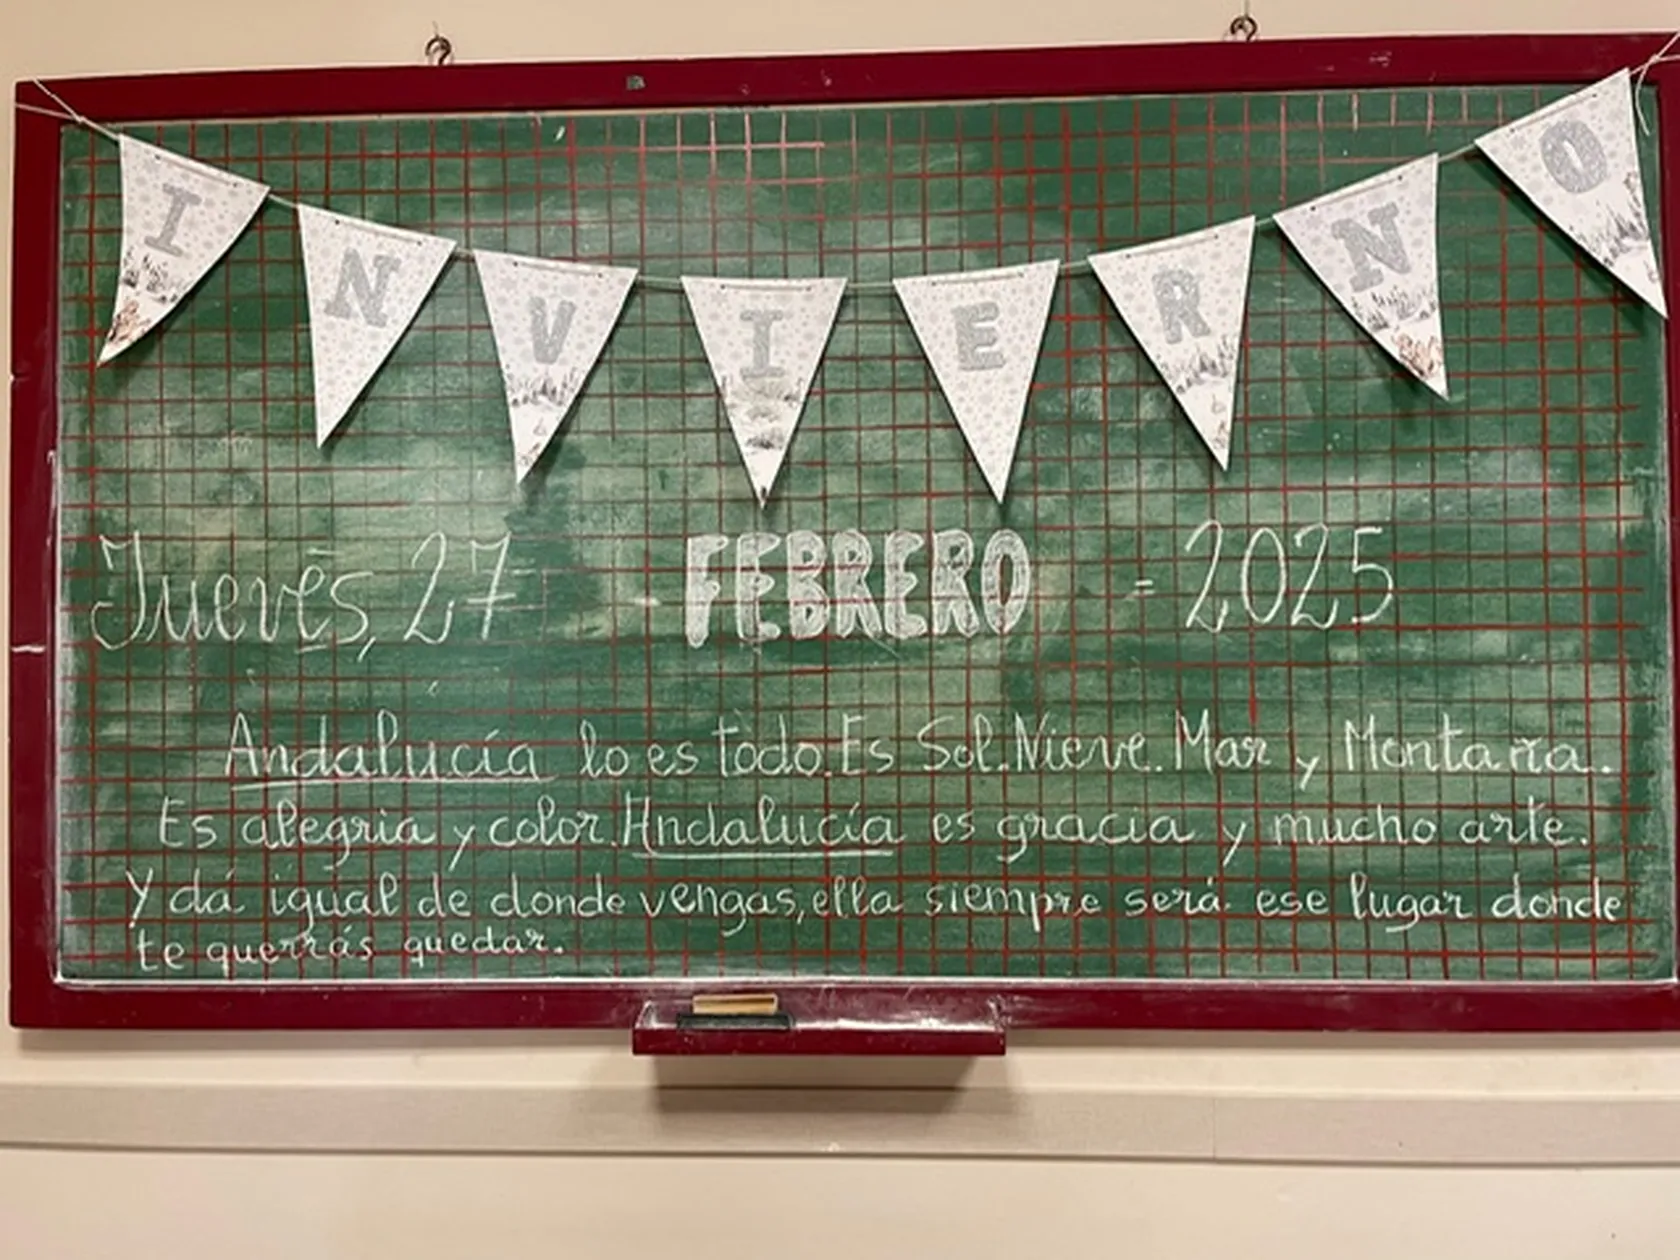 INVIERNO
Jueves, 27 - FEBRERO - 2025
Andalucía lo es todo. Es Sol. Nieve. Mar y Montaña.
Es alegria y color. Andalucía es gracia y mucho arte.
Y dá igual de donde vengas, ella siempre será ese lugar donde
te querrás quedar.